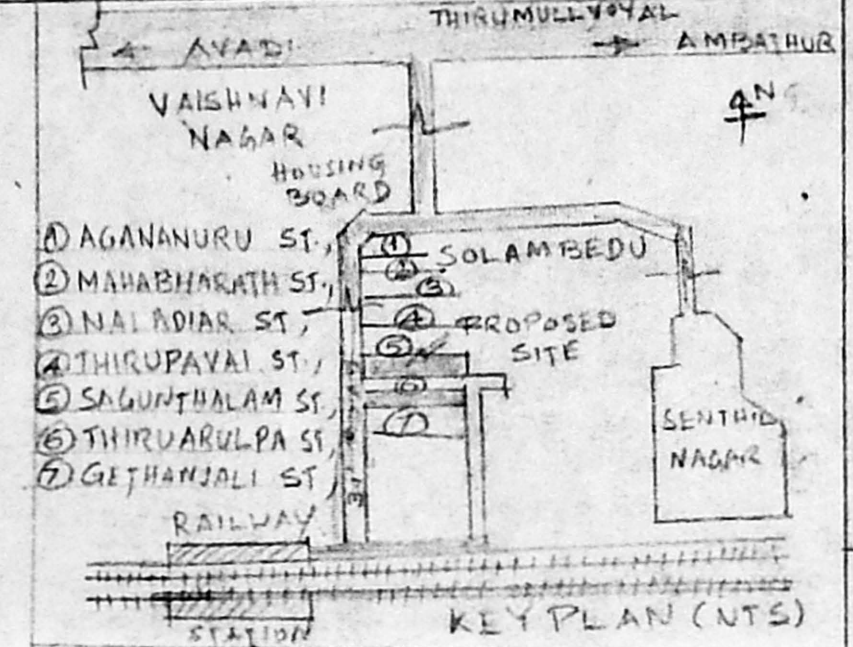 THIRUMULLVOYAL
AVADI
AMBATHUR
VAISHNAVI
NAGAR
N
HOUSING
BOARD
① AGANANURU ST.,
② MAHABHARATH ST.,
③ NALADIAR ST,
④ THIRUPAVAI ST,
⑤ SAGUNTHALAM ST,
⑥ THIRUARULPA ST,
⑦ GETHANJALI ST,
①
②
③
④
⑤
⑥
⑦
SOLAMBEDU
PROPOSED
SITE
SENTHIL
NAGAR
RAILWAY
STATION
KEY PLAN (NTS)